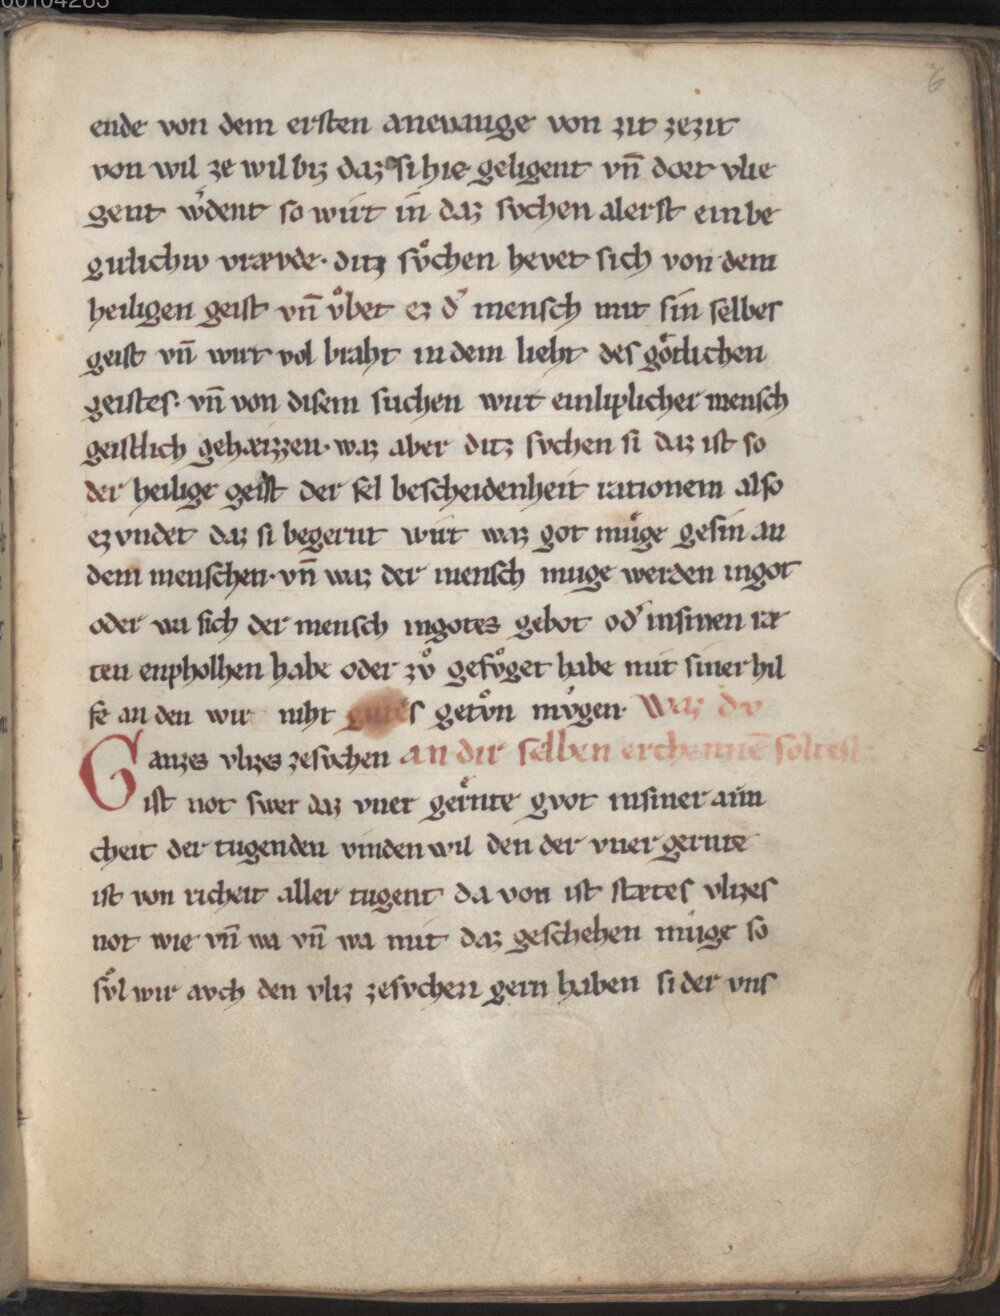 00104263
6
ende von dem ersten anevange von zit zezit
von wil ze wil biz daz si hie geligent vn̄ dort vlie
gent w̓dent so wirt in daz svchen alerst ein be
girlichiv vrævde· ditz svͦchen hevet sich von dem
heiligen geist vn̄ vͦbet ez d̓ mensch mit sin selbes
geist vn̄ wirt vol braht in dem lieht des gōtlichen
geistes· vn̄ von disem suchen wirt ein liplicher mensch
geistlich gehæizzen· waz aber ditz svchen si daz ist so
der heilige geist der sel bescheidenheit rationem also
ez vndet daz si begernt wirt waz got mvͤge gesin an
dem menschen· vn̄ waz der mensch muge werden in got
oder wa sich der mensch in gotes gebot od̓ in sinen ræ
ten enpholhen habe oder zvͦ gefvͦget habe mit siner hil
fe an den wir niht gutes getvͦn mv́gen· Waz dv
Ganzes vlizes ze svchen an dir selben erchennē soltest
ist not swer daz vner gerͤnte gvot in siner æin
cheit der tugenden vinden wil den der vner gernte
ist von richeit aller tugent da von ist stætes vlizes
not wie vn̄ wa vn̄ wa mit daz geschehen muge so
svͦl wir avch den vliz ze svchen gern haben sider vns